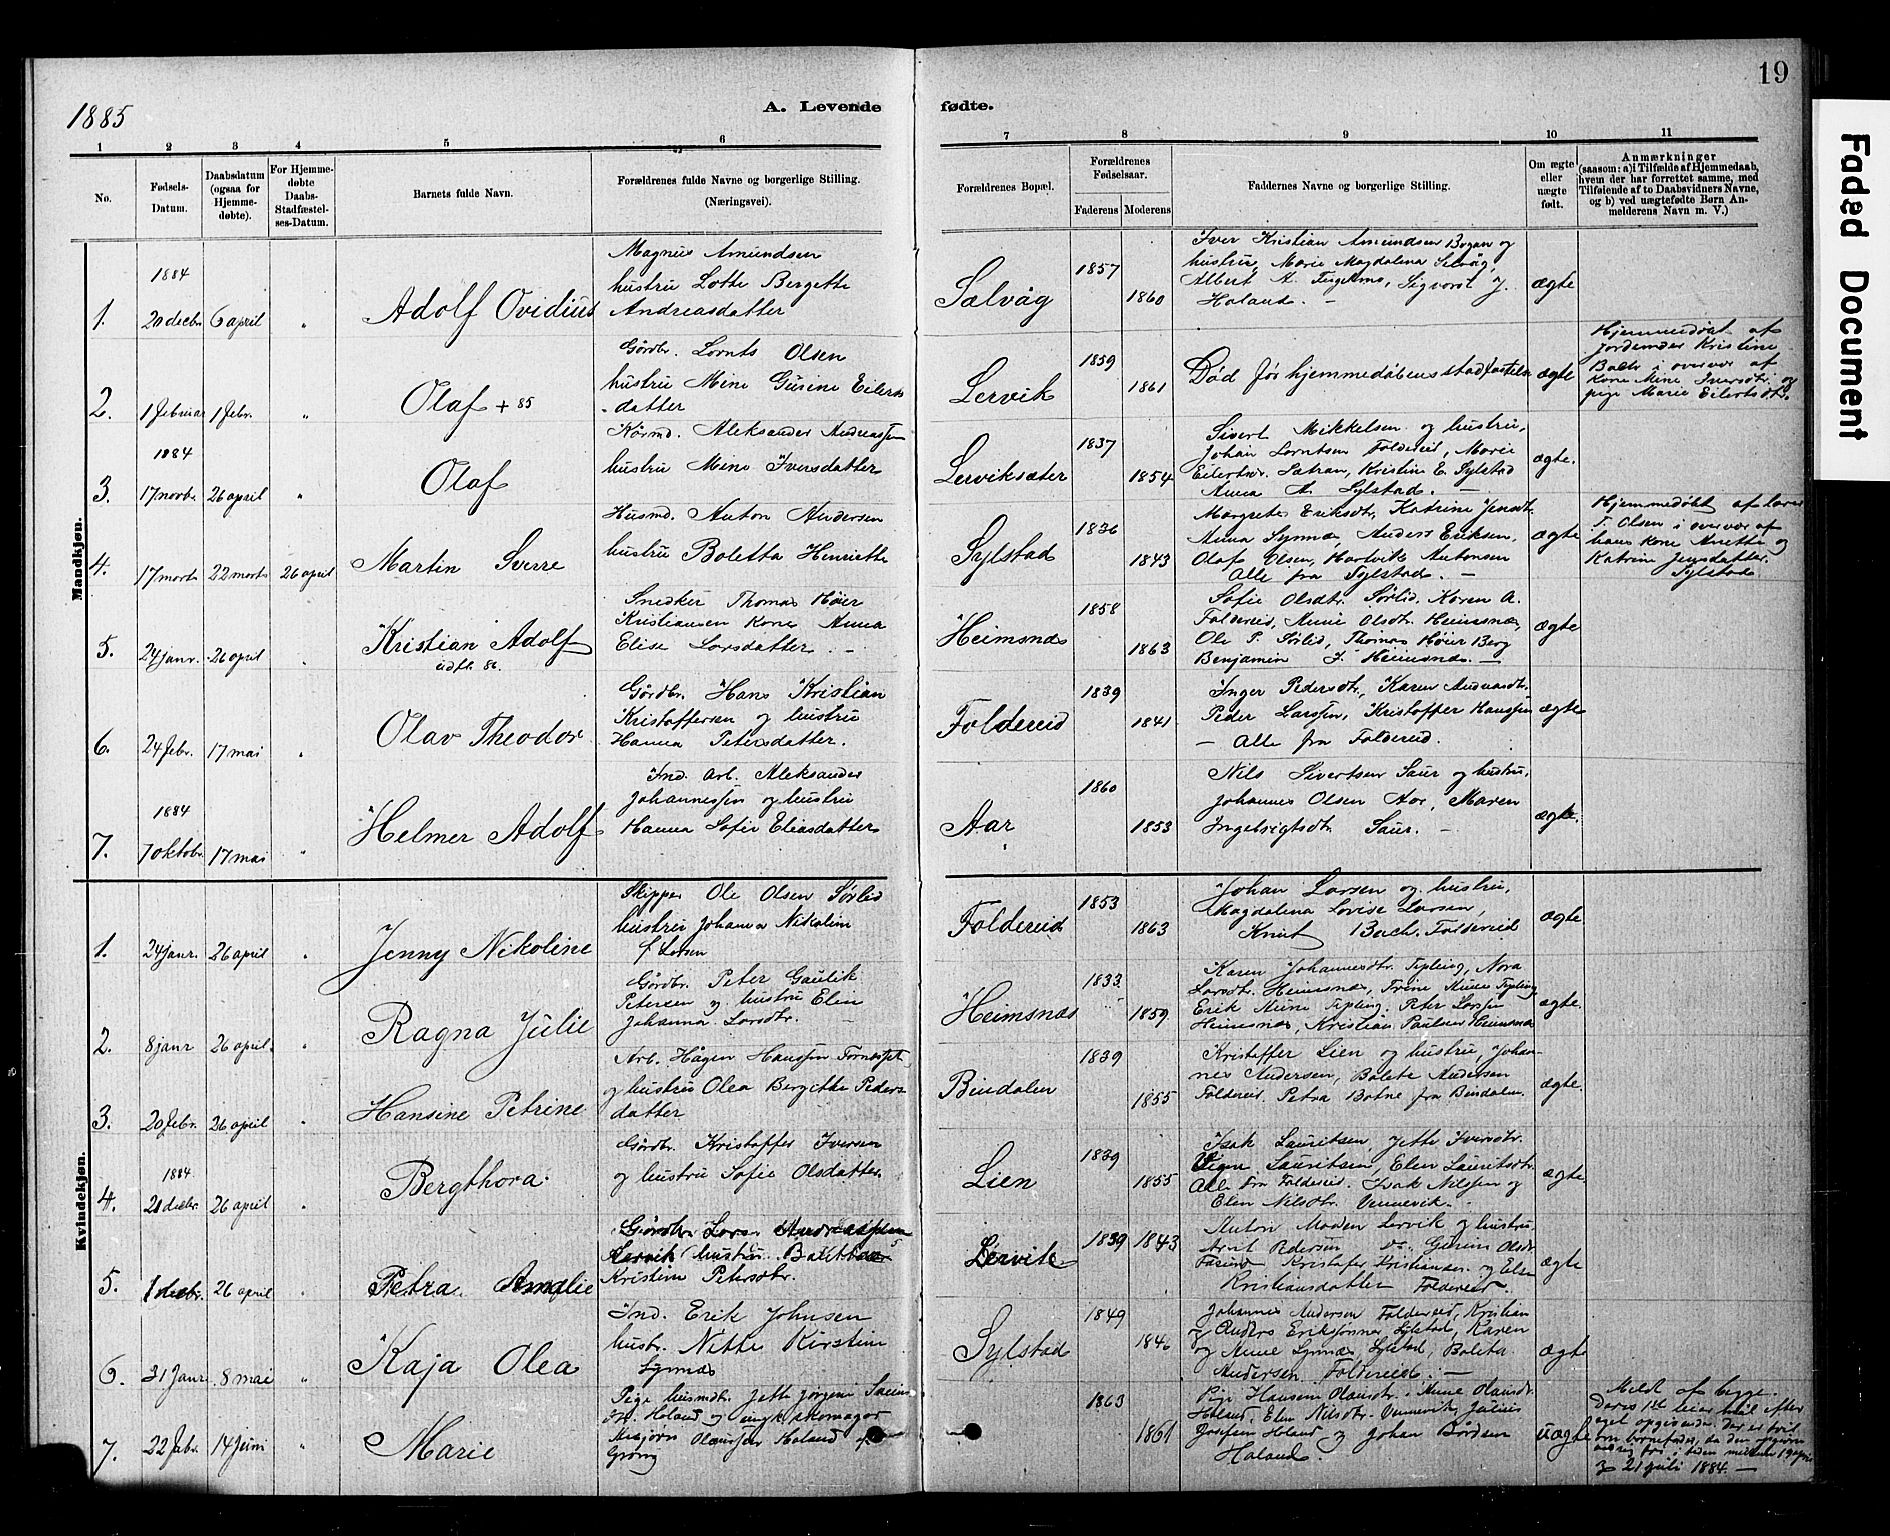 19
1885
A. Levende fødte.
1 2 3 4 5 6 7 8 9 10 11
No.
Fødsels-Datum.
Daabsdatum (ogsaa for Hjemme-døbte).
For Hjemme-døbte Daabs-Stadfæstel-ses-Datum.
Barnets fulde Navn.
Forældrenes fulde Navne og borgerlige Stilling. (Næringsvei).
Forældrenes Bopæl.
Forældrenes Fødselsaar.
Faderens Moderens
Faddernes Navne og borgerlige Stilling.
Om ægte eller uægte født.
Anmærkninger
(saasom: a) i Tilfælde af Hjemmedaab,
hvem der har forrettet samme, med
Tilføiende af to Daabsvidners Navne,
og b) ved uægtefødte Børn An-
melderens Navn m. V.)
Mandkjøn.
1. 1884 20 decbr 6 april " Adolf Ovidius
Magnus Amundsen
hustru Lotte Bergette
Andreasdatter
Sælvåg 1857 1860
Iver Kristian Amundsen Bogan og
hustru, Marie Magdalena Selvåg,
Albert A. Sigvart J.
Høland. -
ægte
2. 1 februar 1 febr. " Olaf + 85
Gårdbr. Lornts Olsen
hustru Mine Gurine Eilers
datter
Lervik 1859 1861
Død før hjemmedåbens stadfæstelse
ægte
Hjemmedøbt af
jordemoder Kristine
i overvær af
kone Mine Iversdtr. og
pige Marie Eilertsdtr.
3. 1884 17 novbr. 26 april " Olaf
Kårmd. Aleksander Andreassen
hustru Mine Iversdatter
Lerviksæter 1837 1854
Sivert Mikkelsen og hustru,
Johan Lorntsen Foldereid, Marie
Eilertsdr. Sætran, Kristine E. Sylstad
Anna A. Sylstad. -
ægte.
4. 17 marts 22 marts 26 april Martin Sverre
Husmd. Anton Andersen
hustru Boletta Henriette
Sylstad 1836 1843
Margrete Eriksdtr, Katrine Jensdtr.
Anna Synnæs, Anders Eriksen,
Olaf Olsen, Hartvik Antonsen
Alle fra Sylstad. -
ægte
Hjemmedøbt af lærer
T. Olsen i overvær af
hans kone Anette og
Katrine Jensdatter.
Sylstad.
5. 24 janr. 26 april " Kristian Adolf
udfl. 86.
Snedker Thomas Høier
Kristiansen kone Anna
Elise Larsdatter. -
Heimsnæs 1858 1863
Sofie Olsdtr. Sørlid, Karen A.
Foldereid, Anne Olsdtr. Heimsnæs,
Ole P. Sørlid, Thomas Høier Berg
Benjamin J. Heimsnæs. -
ægte
6. 24 febr. 17 mai " Olav Theodor
Gårdbr. Hans Kristian
Kristoffersen og hustru
Hanna Petersdatter.
Foldereid 1839 1841
Inger Pedersdtr, Karen
Peder Larssen, Kristoffer Hanssen
- Alle fra Foldereid.
ægte
7. 1884 7 oktobr. 17 mai " Helmer Adolf
Ind. arb. Aleksander
Johannessen og hustru
Hanna Sofie Eliasdatter
Aar 1860 1853
Nils Sivertsen Saur og hustru,
Johannes Olsen Aar, Maren
Ingebrigtsdtr. Saur. -
ægte.
Kvindekjøn.
1. 24 janr. 26 april " Jenny Nikoline
Skipper Ole Olsen Sørlid
hustru Johanna Nikoline
f. Larsen
Foldereid 1853 1863
Johan Larsen og hustru,
Magdalena Lovise Larsen,
Knut Bach. Foldereid
ægte
2. 8 janr 26 april. Ragna Julie
Gårdbr. Peter Gaulik
Petersen og hustru Elen
Johanna Larsdtr. -
Heimsnæs 1833 1859
Karen Johannesdtr. Tepling, Nora
Larsdtr. Heimsnæs, Trine Anne Tepling
Erik Aune Tepling, Peter Larssen
Heimsnæs, Kristian Paulsen Heimsnæs
ægte
3. 20 febr. 26 april " Hansine Petrine
Arb. Hågen Hanssen
og hustru Olea Bergitte Peders-
datter
Bindalen 1839 1855
Kristoffer Lien og hustru, Johan-
nes Andersen, Bolete Andersen
Foldereid. Petra fra Bindalen.
ægte.
4. 1884 21 decbr 26 april " Bergthora
Gårdbr. Kristoffer Iversen
og hustru Sofie Olsdatter.
Lien 1839 1855
Isak Lauritsen, Jette Iversdtr.
Lauritsen, Elen Lauritsdtr.
Alle fra Foldereid. Isak Nilssen og
Elen Nilsdtr. Vennevik.
ægte
5. 1 decbr. 26 april " Petra Amalie
Gårdbr Lars Andreassen
Lervik hustru
Kristine Petersdtr.
Lervik 1839 1843
Anton Lervik og hustru.
Arnt Pedersen Do. Gurine Olsdr
Kristofer Kristiansen og Elen
Kristiansdatter Foldereid.
ægte
6. 31 Janr. 8 mai " Kaja Olea
Ind. Erik Johnsen
hustr. Nitte Kirstine
Synnæs
Sylstad 1849 1846
Johannes Andersen Foldereid, Kristian
og Anders Erikssønner Sylstad, Karen
og Anne Synnæs, Sylstad, Bolette
Andersen Foldereid. -
ægte
7. 22 febr. 14 juni " Marie
Pige husmdtr. Jette
Høland og ungk. skomager
Olaussen Høland
Grong
1863 1861
Pige Hansine Olausdtr. Anne Olausdr.
Høland, Elen Nilsdtr. Vennevik, Julius
Josefsen Høland og Johan Bårdsen
Høland.
uægte
Meldt af begge.
Deres 1ste leiermål efter
eget opgivende.
i tiden mellem 19
og 21 juli 1884. -
Faded Document